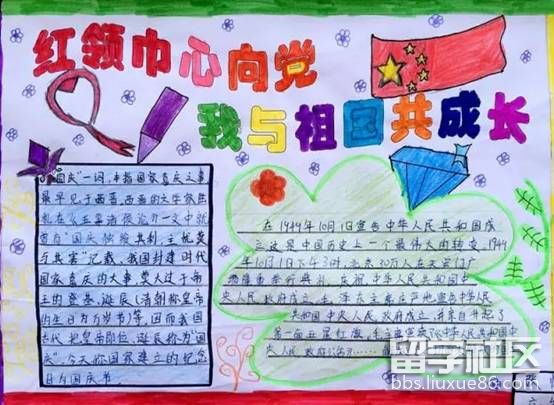 红领巾心向党
我与祖国共成长
国庆"一词,本指国家喜庆之事
最早见于西晋。西晋的文学家陆
机在《五等诸侯论》一文中就
曾有"国庆独飨其利,主忧莫
与其害"记载、我国封建时代
国家喜庆的大事,莫大过于帝
王的登基、诞辰(清朝称皇帝
的生日为万岁节)等,因而我国
古代把皇帝即位、诞辰称为"国
庆"。今天称国家建立的纪念
日为国庆节
在1949年10月1日宣告中华人民共和国成
立这是中国历史上一个最伟大的转变,1949
年10月1日下午3时,北京30万人在天安门广
场隆重举行典礼,庆祝中华人民共和国中
央人民政府成立。毛泽东主席庄严地宣告中华人民
共和国中央人民政府成立,并亲自升起了
第一面五星红旗。毛主席宣读了《中华人民共和国中
央人民政府公告》……
留学社区
bbs.liuxue86.com